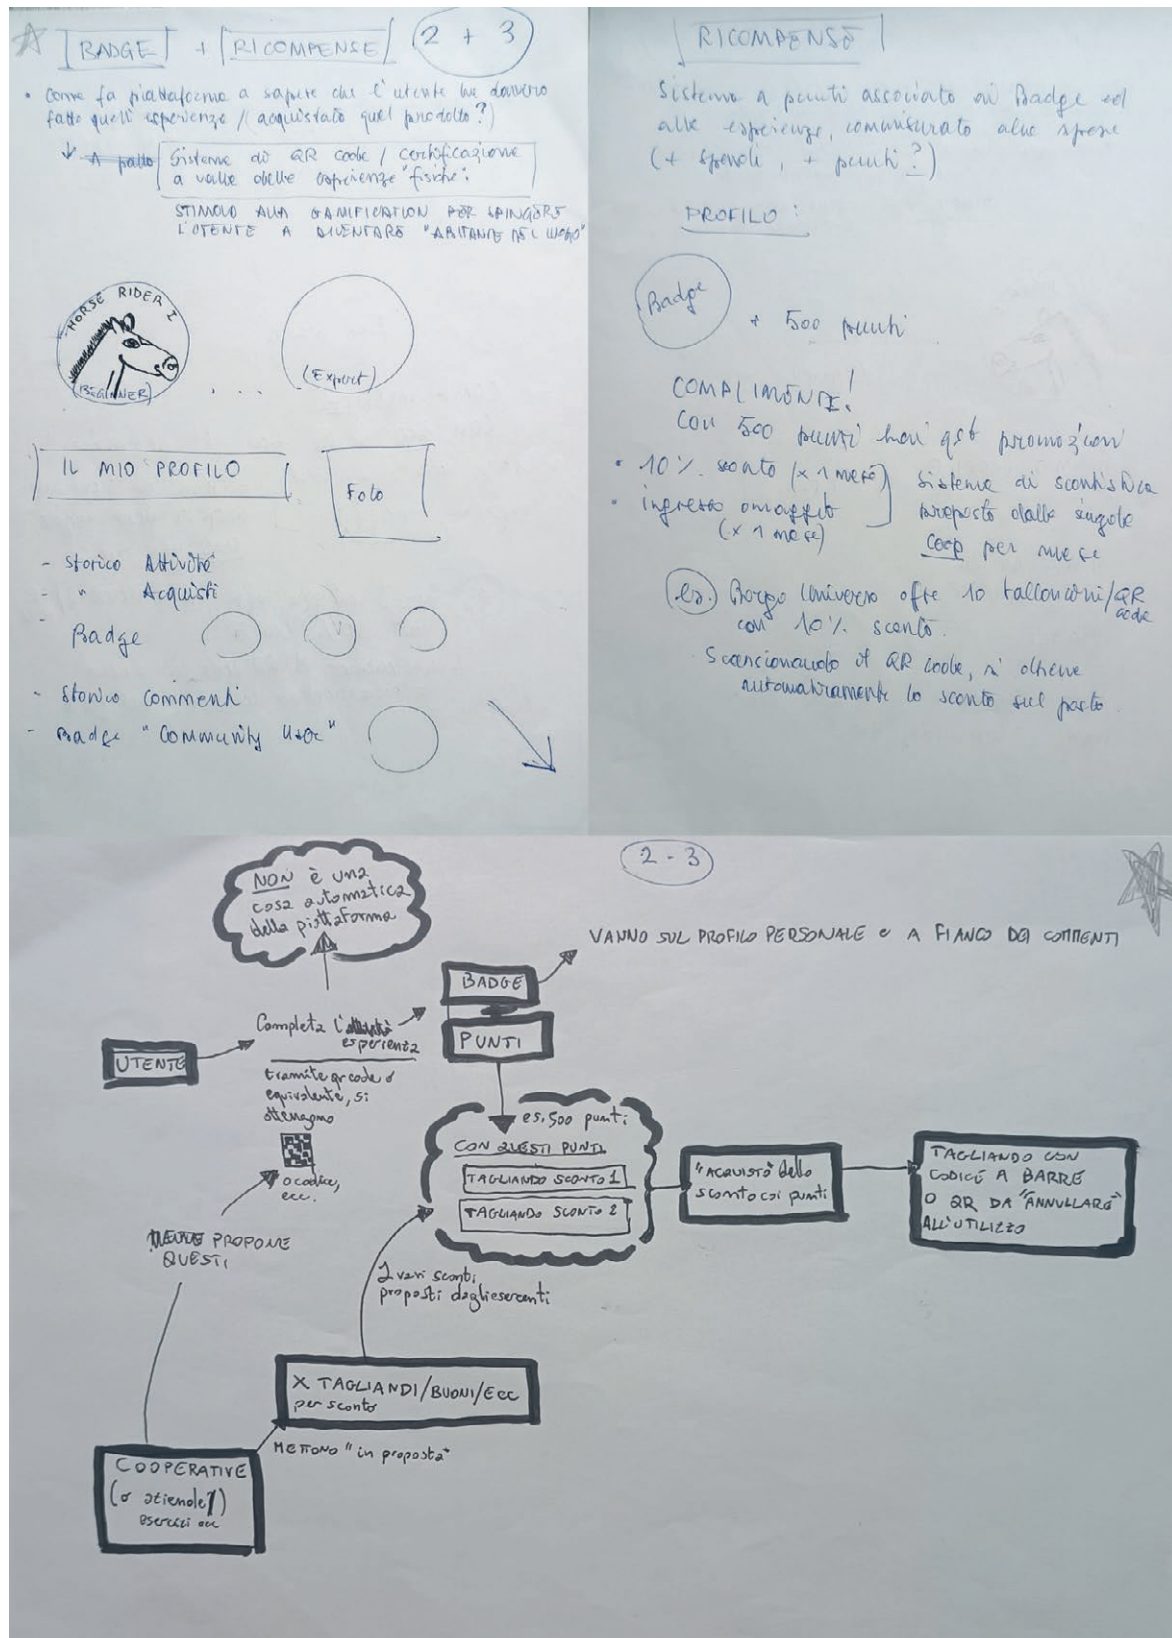 BADGE + RICOMPENSE (2 + 3)
• Come fa piattaforma a sapere che l'utente ha davvero
fatto quell'esperienza / (acquistato quel prodotto?)
Sistema di QR code / certificazione
a valle delle esperienze "fisiche".
STIMOLO ALLA GAMIFICATION PER SPINGERE
L'UTENTE A DIVENTARE "ABITANTE DEL LUOGO"
HORSE RIDER I
(BEGINNER)
. . . .
(Expert)
IL MIO PROFILO
Foto
- Storico Attività
- " Acquisti
- Badge
- Storico commenti
- Badge "Community User"
RICOMPENSE
Sistema a punti associato ai Badge ed
alle esperienze, commisurato alle spese
(+ spendi, + punti?)
PROFILO:
Badge
+ 500 punti
COMPLIMENTI!
Con 500 punti hai qst promozioni
• 10% sconto (x 1 mese)
• ingresso omaggio
(x 1 mese)
Sistema di scontistica
proposto dalle singole
coop per mese
(es.) Borgo Universo offre 10 talloncini/QR
code
con 10% sconto.
Scansionando il QR code, si ottiene
automaticamente lo sconto sul pasto.
2 - 3
NON è una
cosa automatica
della piattaforma
VANNO SUL PROFILO PERSONALE e A FIANCO DEI COMMENTI
BADGE
PUNTI
UTENTE
Completa l'
esperienza
tramite qr code o
equivalente, si
ottengono
o codice,
ecc.
PROPONE
QUESTI
es. 500 punti
CON QUESTI PUNTI
TAGLIANDO SCONTO 1
TAGLIANDO SCONTO 2
"ACQUISTO" dello
sconto coi punti
TAGLIANDO CON
CODICE A BARRE
O QR DA "ANNULLARE"
ALL'UTILIZZO
I vari sconti
proposti dagli esercenti
X TAGLIANDI/BUONI/ECC
per sconto
METTONO "in proposta"
COOPERATIVE
(o aziende)
esercizi ecc